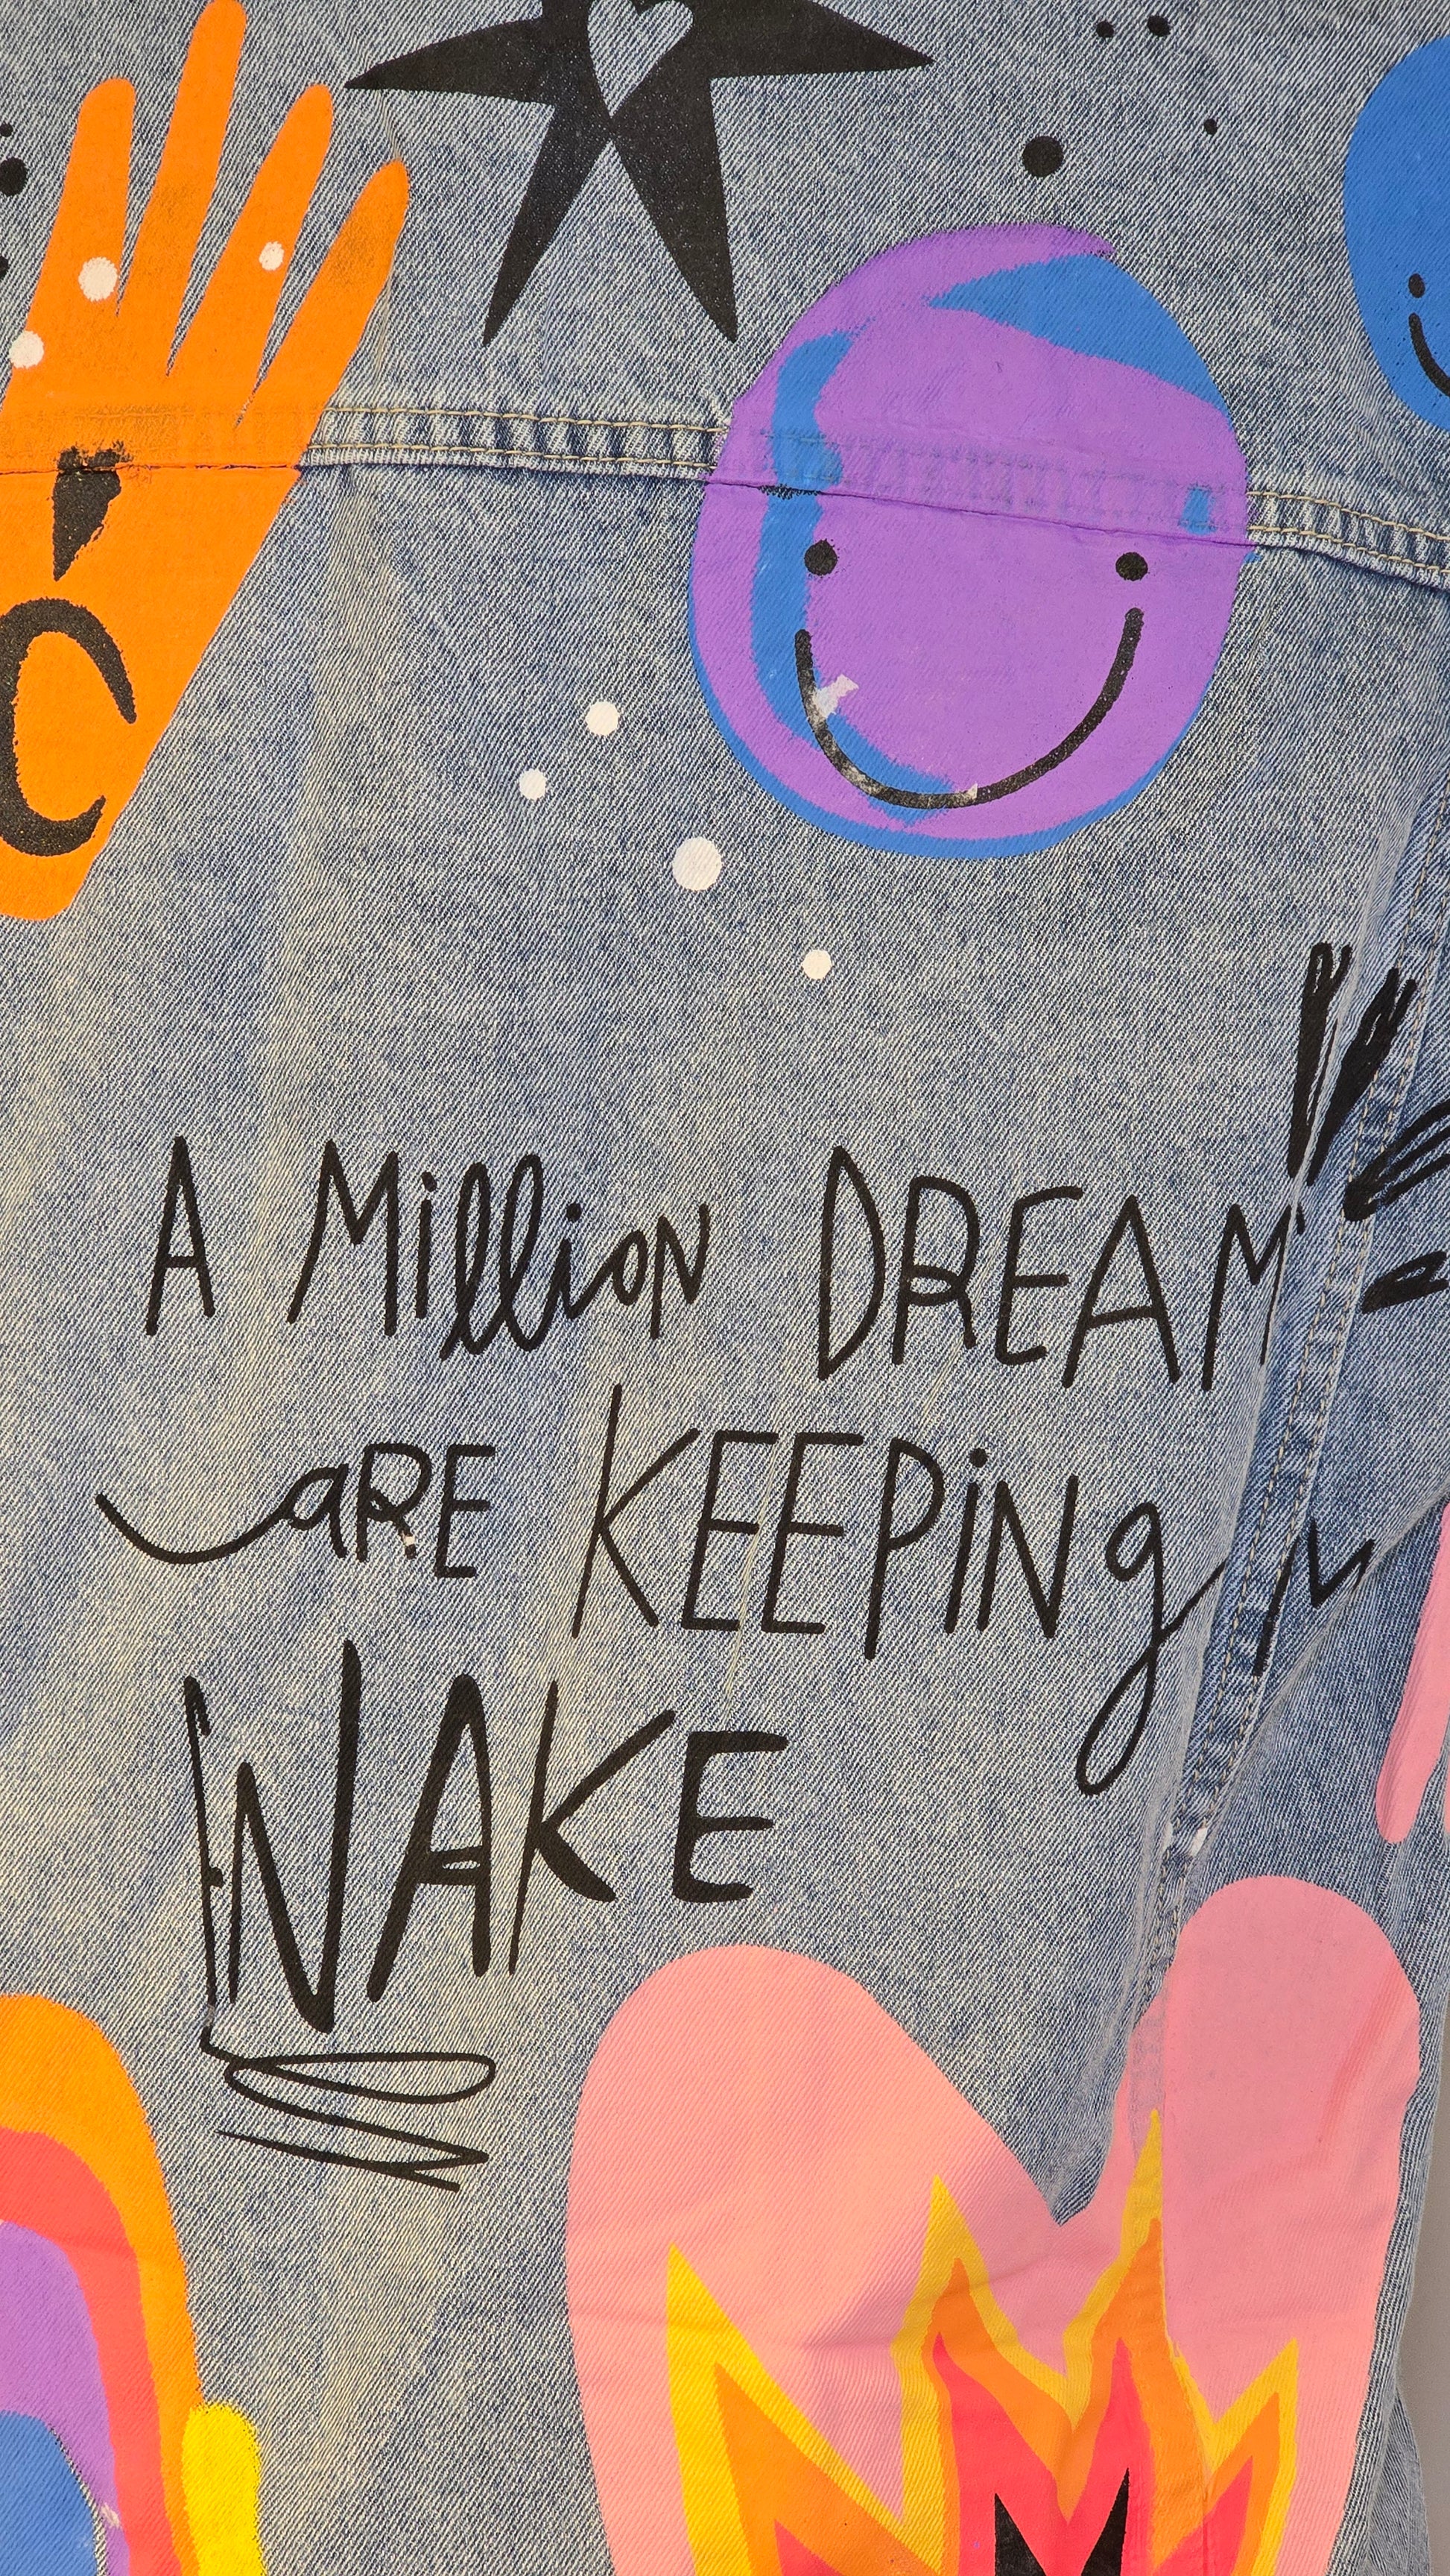 A Million DREAM
aRE KEEPiNg
WAKE